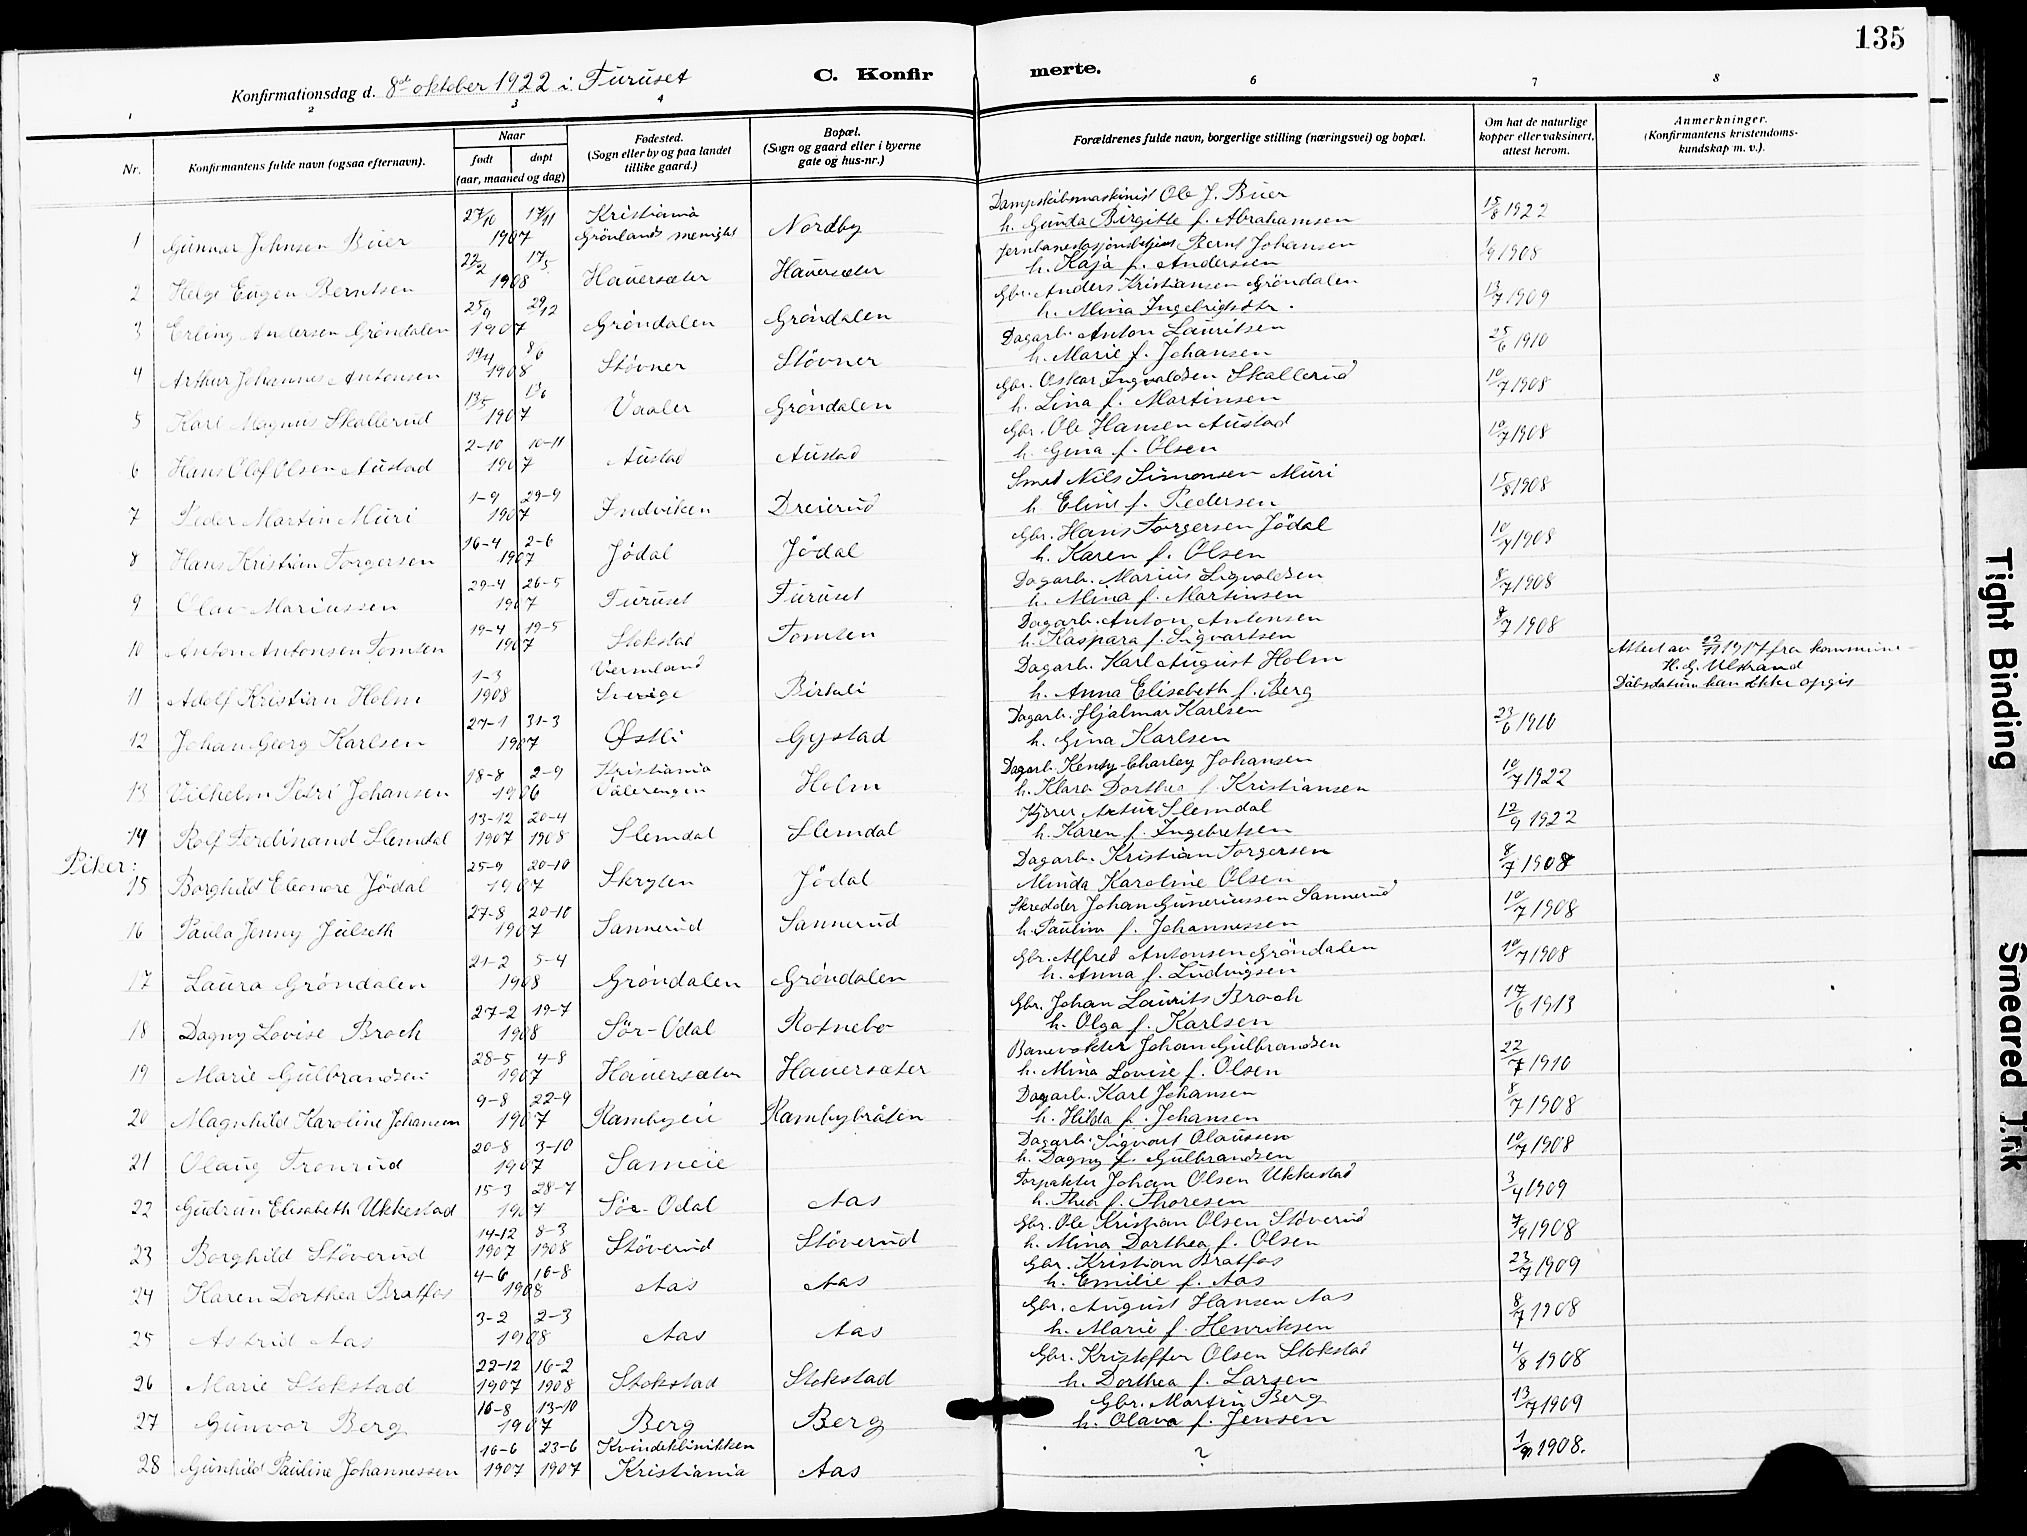 135
C. Konfirmerte.
Konfirmationsdag d. 8de oktober 1922 i Furuset
1 2 3 4 6 7 8
Nr. Konfirmantens fulde navn (ogsaa efternavn). Naar født døpt (aar, maaned og dag) Fødested. (Sogn eller by og paa landet tillike gaard.) Bopæl. (Sogn og gaard eller i byerne gate og hus-nr.) Forældrenes fulde navn, borgerlige stilling (næringsvei) og bopæl. Om hat de naturlige kopper eller vaksinert, attest herom. Anmerkninger. (Konfirmantens kristendomskundskap m. v.).
1 Gunnar Johnsen Buer 27/10 17/11 1907 Kristiania Grönlands menighet Nordby Dampskibsmaskinist Ole J. Buer h. Gunda Birgitte f. Abrahamsen 15/8 1922
2 Helge Eugen Berntsen 22/2 17/5 1908 Hauersæter Hauersæter Bernt Johansen h. Kaja f. Anderssen 1/9 1908
3 Erling Andersen Gröndalen 25/9 29/12 1907 Gröndalen Gröndalen Gbr. Anders Kristiansen Gröndalen h. Mina Ingebrigtsdtr. 13/7 1909
4 Arthur Johannes Antonsen 14/4 8/6 1908 Stövner Stövner Dagarb. Anton Lauritsen h. Marie f. Johansen 25/6 1910
5 Karl Magnus Skallerud 13/5 1907 Vaaler Gröndalen Gbr. Oskar Ingvaldsen Skallerud h. Lina f. Martinsen 10/7 1908
6 Hans Olaf Olsen Austad 2-10 10-11 1907 Austad Austad Gbr. Ole Hansen Austad h. Gina f. Olsen 10/7 1908
7 Peder Martin Muri 1-9 29-9 1907 Indviken Dreierud Smed Nils Simonsen Muri h. Eline f. Pedersen 15/8 1908
8 Hans Kristian Torgersen 16-4 2-6 1907 Jödal Jödal Gbr. Hans Torgersen Jödal h. Karen f. Olsen 10/7 1908
9 Olav Mariussen 29-4 26-5 1907 Furuset Furuset Dagarb. Marius Sigvaldsen h. Mina f. Martinsen 8/7 1908
10 Anton Antonsen Tomten 19-4 19-5 1907 Stokstad Tomten Dagarb. Anton Antonsen h. Kaspara f. Sigvartsen 8/7 1908
11 Adolf Kristian Holm 1-3 1908 Vermland Sverige Birkeli Dagarb. Karl August Holm h. Anna Elisabeth f. Berg Attest av 22/11 1917 fra kommune- H. G. Ulstrand Dåbsdatum kan ikke opgis
12 Johan Georg Karlsen 27-1 31-3 1907 Østli Gystad Dagarb. Hjalmar Karlsen h. Gina Karlsen 23/6 1910
13 Vilhelm Petri Johansen 18-8 2-9 1906 Kristiania Vålerengen Holm Dagarb. Kensy Charley Johansen h. Klara Dorthea f. Kristiansen 10/7 1922
14 Rolf Ferdinand Slemdal 13-12 1907 20-4 1908 Slemdal Slemdal Kjører Artur Slemdal h. Karen f. Ingebretsen 12/9 1922
Piker:
15 Borghild Eleonore Jödal 25-9 20-10 1907 Skryten Jödal Dagarb. Kristian Torgersen Minda Karoline Olsen 8/7 1908
16 Paula Jenny Julseth 27-8 20-10 1907 Sannerud Sannerud Skredder Johan Guneriussen Sannerud h. Pauline f. Johannessen 10/7 1908
17 Laura Gröndalen 21-2 5-4 1908 Gröndalen Gröndalen Gbr. Alfred Antonsen Gröndalen h. Anna f. Ludvigsen 10/7 1908
18 Dagny Lovise Broch 27-2 19-7 1908 Sör-Odal Rotnebo Gbr. Johan Laurits Broch h. Olga f. Karlsen 17/6 1913
19 Marie Gulbrandsen 28-5 4-8 1907 Hauersæter Hauersæter Banevokter Johan Gulbrandsen h. Mina Lovise f. Olsen 22/7 1910
20 Magnhild Karoline Johansen 9-8 22-9 1907 Rambyeie Rambybråten Dagarb. Karl Johansen h. Hilda f. Johansen 8/7 1908
21 Olaug Tronrud 20-8 3-10 1907 Sameie Dagarb. Sigvart Olaussen h. Dagny f. Gulbrandsen 10/7 1908
22 Gudrun Elisabeth Ukkestad 15-3 28-7 1907 Sör-Odal Aas Forpakter Johan Olsen Ukkestad h. Thea f. Thoresen 3/4 1909
23 Borghild Stöverud 14-12 1907 8-3 1908 Stöverud Stöverud Gbr. Ole Kristian Olsen Stöverud h. Mina Dorthea f. Olsen 7/9 1908
24 Karen Dorthea Bratfos 4-6 16-8 1908 Aas Aas Gbr. Kristian Bratfos h. Emilie f. Aas 23/7 1909
25 Astrid Aas 3-2 2-3 1908 Aas Aas Gbr. August Hansen Aas h. Marie f. Henriksen 8/7 1908
26 Marie Stokstad 22-12 1907 16-2 1908 Stokstad Stokstad Gbr. Kristoffer Olsen Stokstad h. Dorthea f. Larsen 4/8 1908
27 Gunvor Berg 16-8 13-10 1907 Berg Berg Gbr. Martin Berg h. Olava f. Jensen 13/7 1909
28 Gunhild Pauline Johannessen 16-6 1907 23-6 1907 Kvindeklinikken Kristiania Aas ? 1/9 1908.
Tight Binding
Smeared Ink